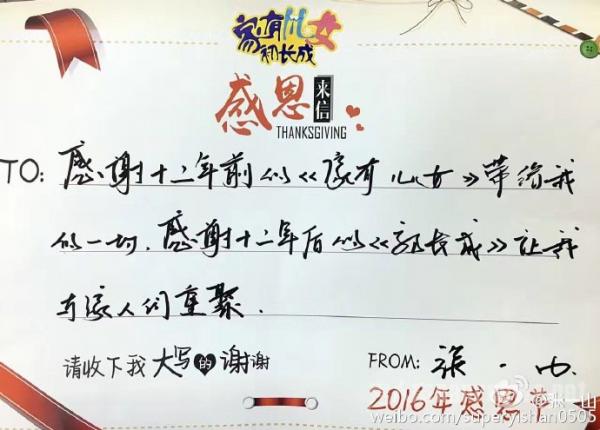 家有儿女
初长成
感恩来信
THANKSGIVING
TO: 感谢十二年前的《家有儿女》带给我
的一切，感谢十二年后的《初长成》让我
与家人们重聚.
请收下我 大写的谢谢
FROM: 张一山
2016年感恩节
@张一山
weibo.com/superyishan0505